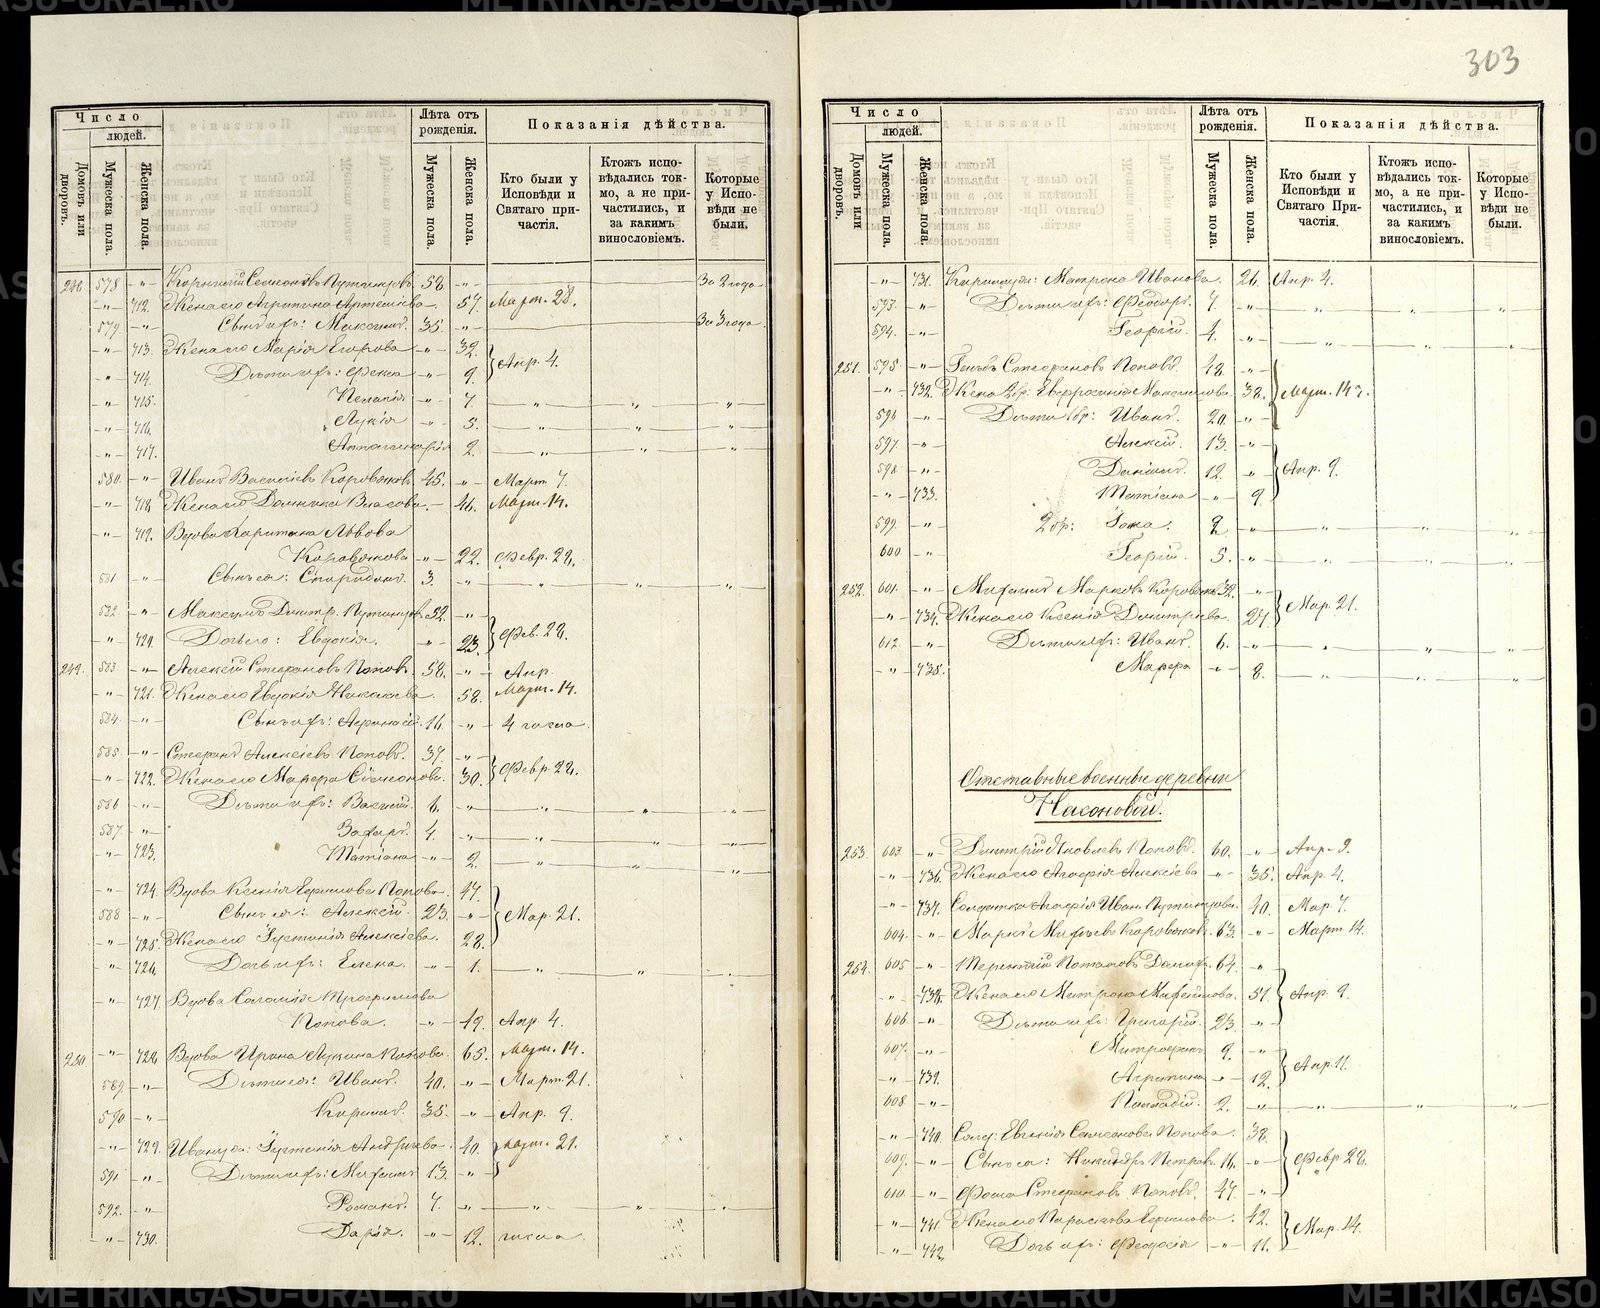 303
Число
людей.
Домовъ или дворовъ.
Мужеска пола.
Женска пола.
Лѣта отъ рожденія.
Мужеска пола.
Женска пола.
Показанія дѣйства.
Кто были у Исповѣди и Святаго причастія.
Ктожъ исповѣдались токмо, а не причастились, и за какимъ винословіемъ.
Которые у Исповѣди не были.
578 -„- 58. -„- За 2 года
-„- 712. Жена его Агрипина 57. Март. 28.
579 -„- Сынъ ихъ: Максимъ. 35 -„- За 3 года.
-„- 713. Жена его Марія Егорова -„- 32. Апр. 4.
-„- 714. Дѣти ихъ: -„- 9.
-„- 715. Пелагія -„- 7.
-„- 716. Лукія -„- 5.
-„- 717. -„- 2.
580 -„- Иванъ Васильевъ 45. -„- Март 7.
-„- 718. Жена его Домника Власова. -„- 46. Март. 14.
-„- 719. Вдова Харитина Львова
-„- 22. Февр. 28.
581 -„- Сынъ ея: Спиридонъ. 3. -„-
582 -„- Максимъ Димитр. 52. -„-
-„- 720. Дочь его: Евдокія. -„- 23. Фев. 28.
249. 583 -„- Алексій Стефановъ Поповъ. 58. -„- Апр
-„- 721. Жена его Евдокія 58. Март. 14.
584 -„- Сынъ ихъ: Аѳанасій. 16. -„- 4 числа
585 -„- Стефанъ Алексіевъ Поповъ. 37. -„-
-„- 722. Жена его Марѳа Симеонова. 30. Февр. 28.
586 -„- Дѣти ихъ: Василій. 6. -„-
587 -„- Захаръ. 4. -„-
-„- 723. Татіана -„- 2.
-„- 724. Вдова Ксенія Ефимова Попова. 47.
588 -„- Сынъ ея: Алексій. 23. -„- Мар. 21.
-„- 725. Жена его Іустинія Алексіева. 28.
-„- 726. Дочь ихъ: Елена. -„- 1.
-„- 727. Вдова Соломія Трофимова
Попова. -„- 49. Апр. 4.
250. -„- 728. Вдова Ирина Лукина Попова. 65. Март. 14.
589. -„- Дѣти ея: Иванъ. 40. -„- Март. 21.
590. -„- Кирилъ. 35. -„- Апр. 9.
-„- 729. Иванова: Іустинія Андріева. 40. Март. 21.
591 -„- Дѣти ихъ: Михаилъ 13. -„-
592. -„- Романъ. 7. -„-
-„- 730. Дарія. -„- 12. числа.
Число
людей.
Домовъ или дворовъ.
Мужеска пола.
Женска пола.
Лѣта отъ рожденія.
Мужеска пола.
Женска пола.
Показанія дѣйства.
Кто были у Исповѣди и Святаго Причастія.
Ктожъ исповѣдались токмо, а не причастились, и за какимъ винословіемъ.
Которые у Исповѣди не были.
-„- 731. Матрона Иванова. 26. Апр. 4.
593. -„- Дѣти ихъ: Ѳеодоръ. 7. -„-
594. -„- Георгій. 4. -„-
251. 595 -„- Стефановъ Поповъ. 48. -„-
-„- 732. Жена 2 бр. Евфросинія Максимова. 38. Март. 14
596 -„- Дѣти 1 бр: Иванъ. 20. -„-
597. -„- Алексій. 13. -„-
598. -„- Даніилъ. 12. -„- Апр. 9.
-„- 733. Татіана -„- 9
599. -„- 2 бр: 2 -„-
600 -„- Георгій. 5. -„-
252. 601. -„- Михаилъ Марковъ 32. -„-
-„- 734. Жена его Ксенія Димитріева. 27. Мар. 21.
612 -„- Дѣти ихъ: Иванъ. 6. -„-
-„- 735. Марѳа -„- 8.
Отставные военные деревни
Насоновой.
253. 603 -„- Димитрій Яковлевъ Поповъ. 60. -„- Апр. 9.
-„- 736. Жена его Агафія Алексіева -„- 35. Апр. 4.
-„- 737. Солдатка Агафія Иван. 40. Мар. 7.
604. -„- Марко 63. -„- Март 14.
254. 605 -„- Терентій Потаповъ 64. -„-
-„- 738. Жена его Матрона 57. Апр. 9.
606. -„- Дѣти ихъ: Григорій. 23. -„-
607. -„- Митрофанъ 9. -„-
-„- 739. Агрипина -„- 12. Апр. 11.
608 -„- Палладій. 2. -„-
-„- 740. Солд: Евгенія Симеонова Попова. 38.
609. -„- Сынъ ея: Никандръ Петровъ 16. -„- Февр. 28.
610. -„- Ѳома Стефановъ Поповъ. 47. -„-
-„- 741. Жена его Параскева Ефимова. 42. Мар. 14.
-„- 742 Дочь ихъ: Ѳеодосія -„- 11.
METRIKI.GASO-URAL.RU